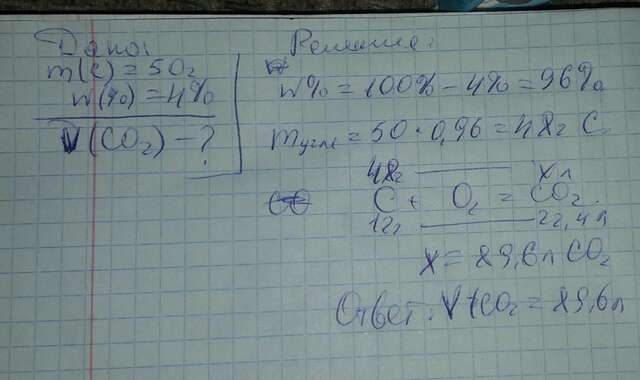 Дано:
m(C) = 50г
w(%) = 4%
V(CO2) - ?
Решение:
w% = 100% - 4% = 96%
m угле = 50 · 0,96 = 48г C
48г xл
C + O2 = CO2.
12г 22,4л
x = 89,6л CO2
Ответ: V(CO2 = 89,6л